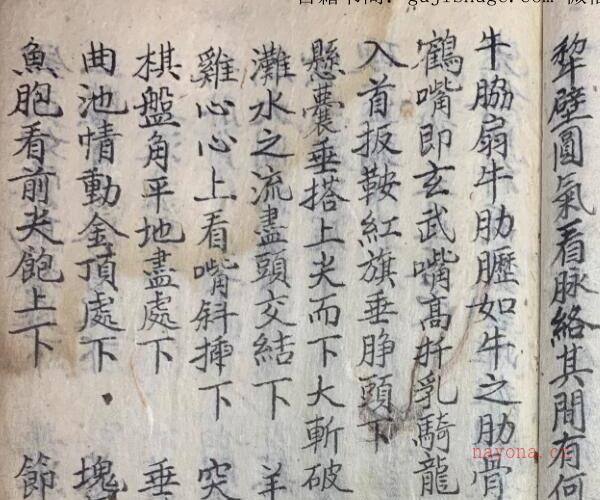 犂壁圓氣看脉絡其間有何
牛脇扇牛肋壢如牛之肋骨
鶴嘴即玄武嘴髙扦乳騎龍
入首扳鞍紅旗垂脖頭下
懸囊垂搭上尖而下大斬破
灘水之流盡頭交結下 羊
雞心心上看嘴斜揷下 突
棋盤角平地盡處下 垂
曲池情動金頂處下 塊
魚胞看前尖飽上下 節
nayona.cn